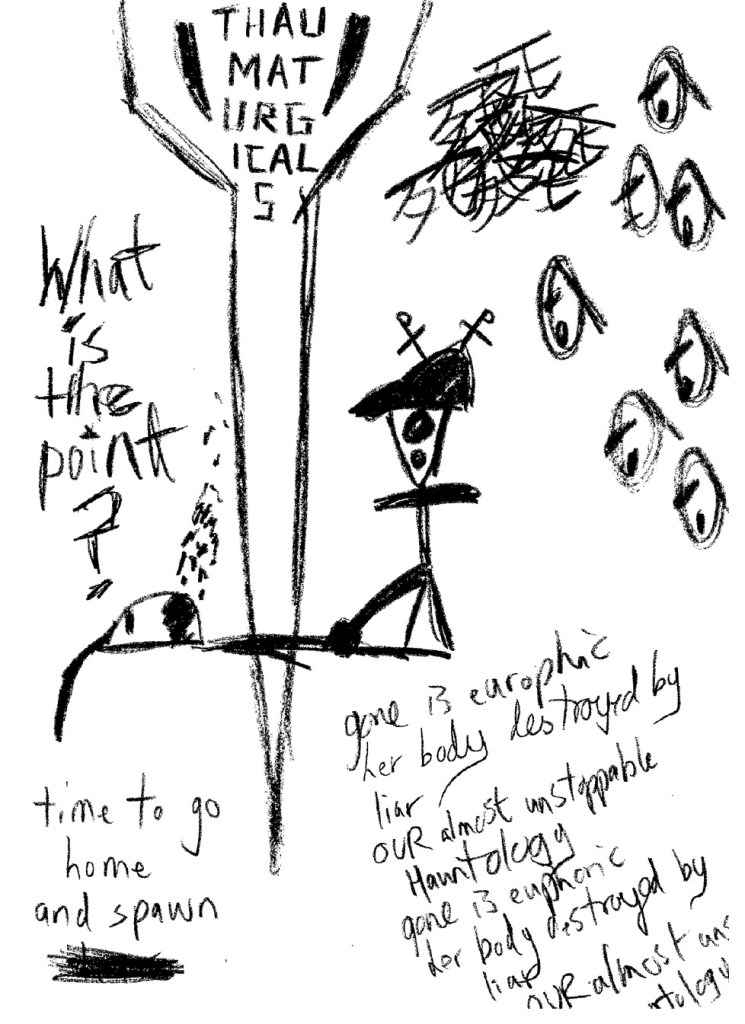 THAU
MAT
URG
ICAL
S
What
is
the
point
?
time to go
home
and spawn
gone is europhic
her body destroyed by
liar
OUR almost unstoppable
Hauntology
gone is euphoric
her body destroyed by
liar
OUR almost uns
ntology